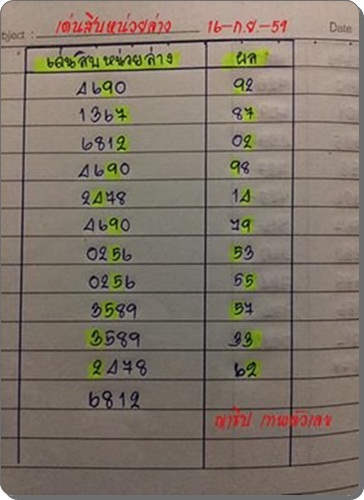 bject : เด่นสิบหน่วยล่าง 16-ก.ย-59 Date
เด่นสิบหน่วยล่าง ผล
4690 92
1367 87
6812 02
4690 98
2478 14
4690 79
0256 53
0256 55
3589 57
3589 33
2478 62
6812